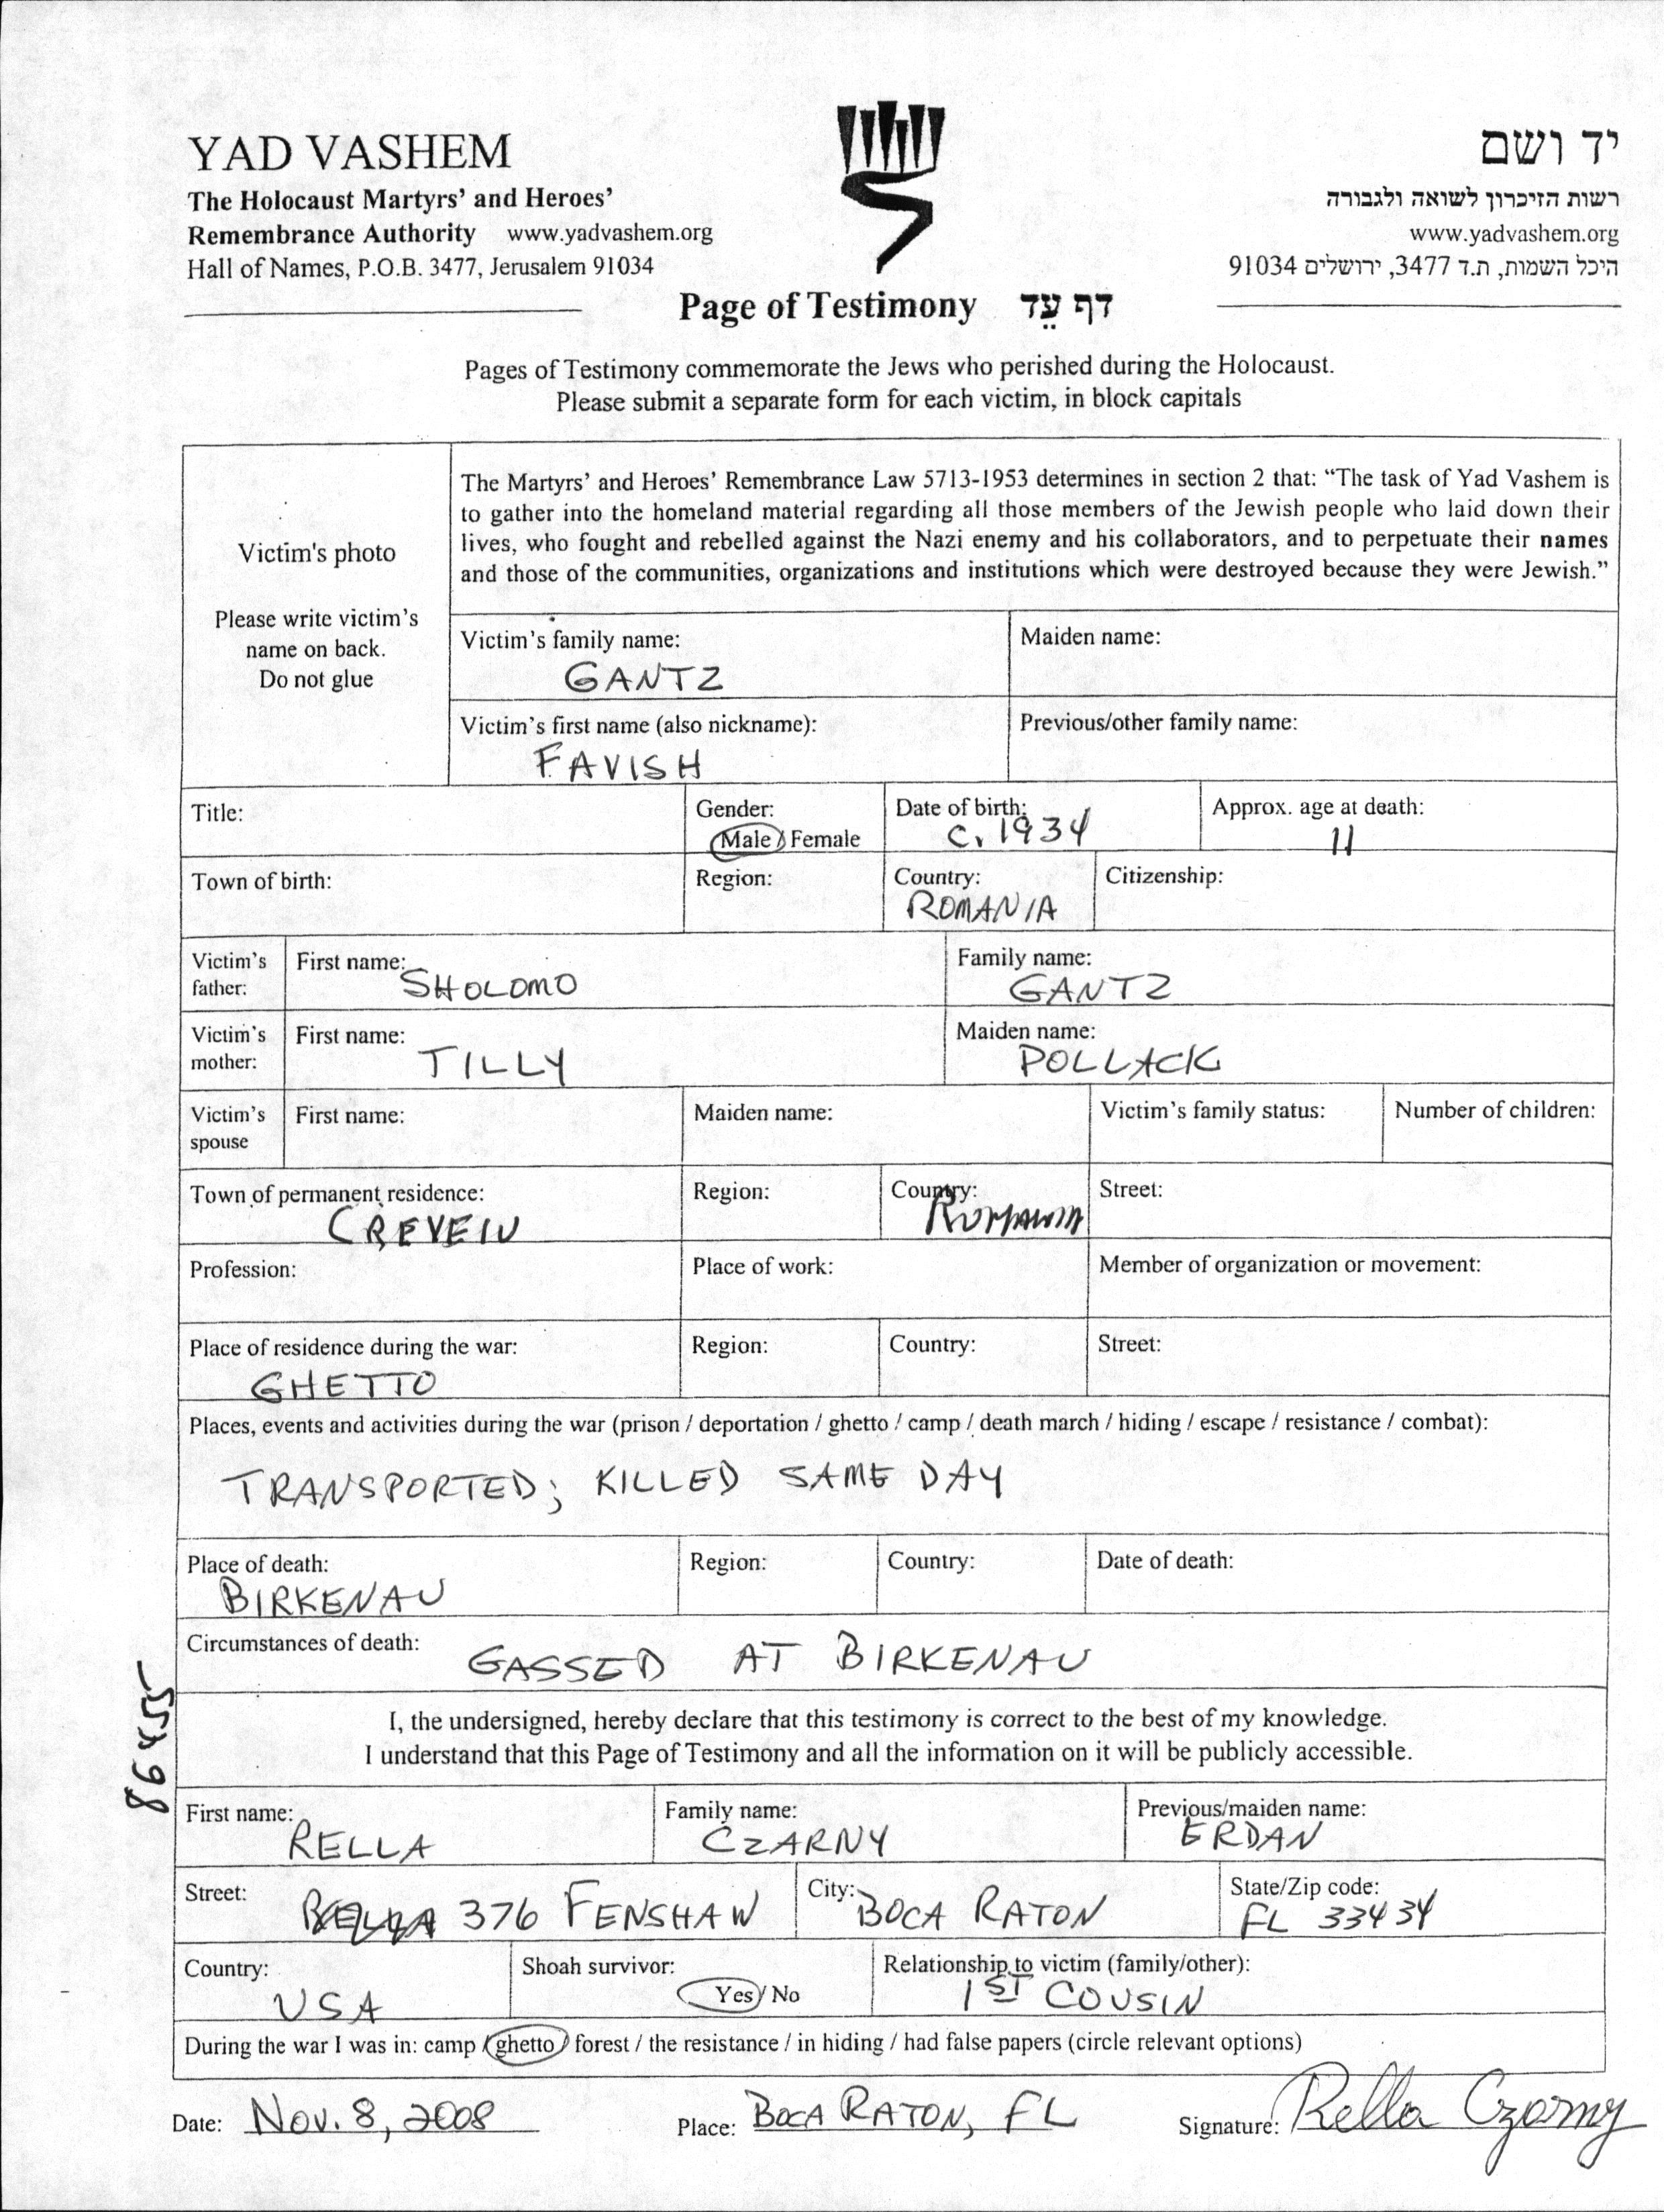 YAD VASHEM
The Holocaust Martyrs' and Heroes'
Remembrance Authority www.yadvashem.org
Hall of Names, P.O.B. 3477, Jerusalem 91034
יד ושם
רשות הזיכרון לשואה ולגבורה
www.yadvashem.org
היכל השמות, ת.ד 3477, ירושלים 91034
Page of Testimony דף עֵד
Pages of Testimony commemorate the Jews who perished during the Holocaust.
Please submit a separate form for each victim, in block capitals
Victim's photo
Please write victim's
name on back.
Do not glue
The Martyrs' and Heroes' Remembrance Law 5713-1953 determines in section 2 that: "The task of Yad Vashem is
to gather into the homeland material regarding all those members of the Jewish people who laid down their
lives, who fought and rebelled against the Nazi enemy and his collaborators, and to perpetuate their names
and those of the communities, organizations and institutions which were destroyed because they were Jewish."
Victim's family name: Maiden name:
GANTZ
Victim's first name (also nickname): Previous/other family name:
FAVISH
Title: Gender: Date of birth: Approx. age at death:
Male / Female C. 1934 11
Town of birth: Region: Country: Citizenship:
ROMANIA
Victim's father: First name: SHOLOMO Family name: GANTZ
Victim's mother: First name: TILLY Maiden name: POLLACK
Victim's spouse First name: Maiden name: Victim's family status: Number of children:
Town of permanent residence: Region: Country: Street:
CREVEIU ROMANIA
Profession: Place of work: Member of organization or movement:
Place of residence during the war: Region: Country: Street:
GHETTO
Places, events and activities during the war (prison / deportation / ghetto / camp / death march / hiding / escape / resistance / combat):
TRANSPORTED; KILLED SAME DAY
Place of death: Region: Country: Date of death:
BIRKENAU
Circumstances of death: GASSED AT BIRKENAU
I, the undersigned, hereby declare that this testimony is correct to the best of my knowledge.
I understand that this Page of Testimony and all the information on it will be publicly accessible.
First name: Family name: Previous/maiden name:
RELLA CZARNY ERDAN
Street: 376 FENSHAW City: BOCA RATON State/Zip code: FL 33434
Country: Shoah survivor: Relationship to victim (family/other):
USA Yes / No 1ST COUSIN
During the war I was in: camp / ghetto / forest / the resistance / in hiding / had false papers (circle relevant options)
Date: Nov. 8, 2008 Place: BOCA RATON, FL Signature: Rella Czarny